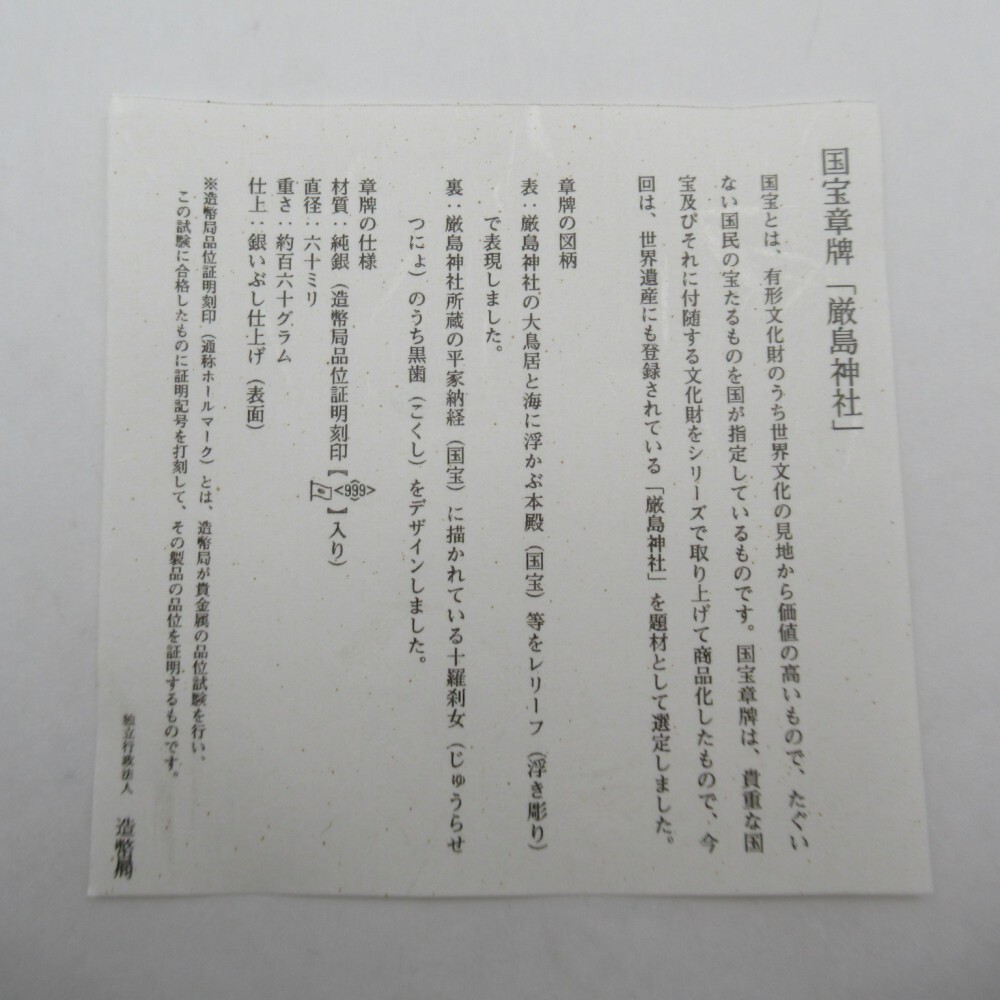 国宝章牌「厳島神社」
国宝とは、有形文化財のうち世界文化の見地から価値の高いもので、たぐい
ない国民の宝たるものを国が指定しているものです。国宝章牌は、貴重な国
宝及びそれに付随する文化財をシリーズで取り上げて商品化したもので、今
回は、世界遺産にも登録されている「厳島神社」を題材として選定しました。
章牌の図柄
表：厳島神社の大鳥居と海に浮かぶ本殿（国宝）等をレリーフ（浮き彫り）
で表現しました。
裏：厳島神社所蔵の平家納経（国宝）に描かれている十羅刹女（じゅうらせ
つにょ）のうち黒歯（こくし）をデザインしました。
章牌の仕様
材質：純銀（造幣局品位証明刻印【<999>】入り）
直径：六十ミリ
重さ：約百六十グラム
仕上：銀いぶし仕上げ（表面）
※造幣局品位証明刻印（通称ホールマーク）とは、造幣局が貴金属の品位試験を行い、
この試験に合格したものに証明記号を打刻して、その製品の品位を証明するものです。
独立行政法人 造幣局